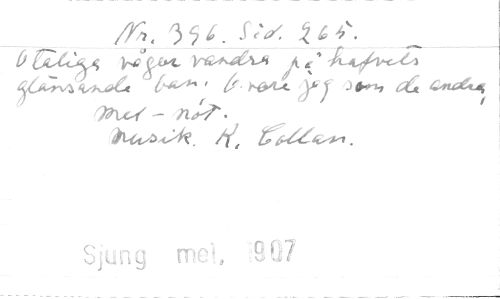 Nr. 396. Sid. 265.
Otaliga vågor vandra på hafvets
glänsande ban. O vore jag som de andra,
Mel-nöt.
Musik. K. Collan.
Sjung mel, 1907